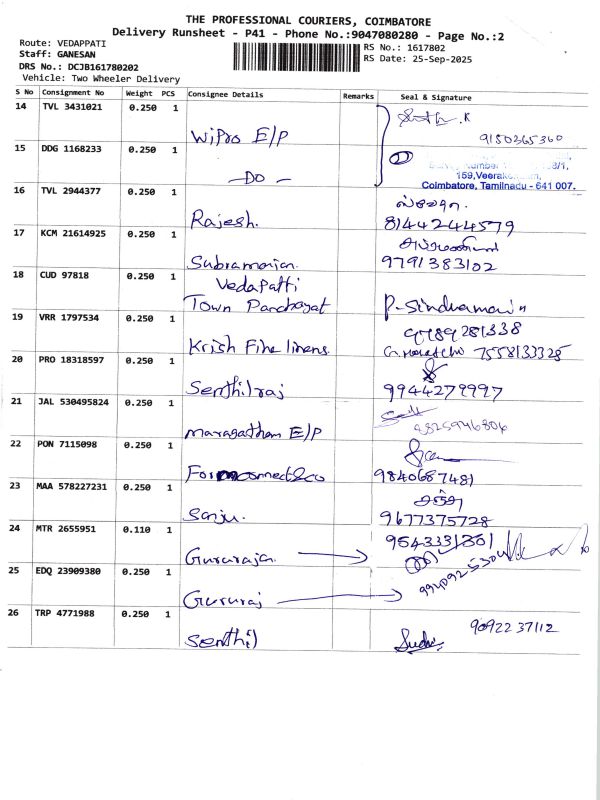 THE PROFESSIONAL COURIERS, COIMBATORE
Delivery Runsheet - P41 - Phone No.:9047080280 - Page No.:2
Route: VEDAPPATI
Staff: GANESAN
DRS No.: DCJB161780202
Vehicle: Two Wheeler Delivery
RS No.: 1617802
RS Date: 25-Sep-2025
S No Consignment No Weight PCS Consignee Details Remarks Seal & Signature
14 TVL 3431021 0.250 1
Wipro E/P
9150365360
15 DDG 1168233 0.250 1
—DO—
159,Veerakeralam,
Coimbatore, Tamilnadu - 641 007.
16 TVL 2944377 0.250 1
Rajesh. 8144244579
17 KCM 21614925 0.250 1
Subramanian. 9791383102
18 CUD 97818 0.250 1
Vedapatti
Town Panchayat P-Sindhamani
19 VRR 1797534 0.250 1
9789281338
Krish Fine linens 7558133328
20 PRO 18318597 0.250 1
Senthilraj 9944279997
21 JAL 530495824 0.250 1
Maragatham E/P
22 PON 7115098 0.250 1
9840687481
23 MAA 578227231 0.250 1
Sanju. 9677375728
24 MTR 2655951 0.110 1
9543331301
Gururaja
25 EDQ 23909380 0.250 1
Gururaj
26 TRP 4771988 0.250 1
9092237112
Senthil